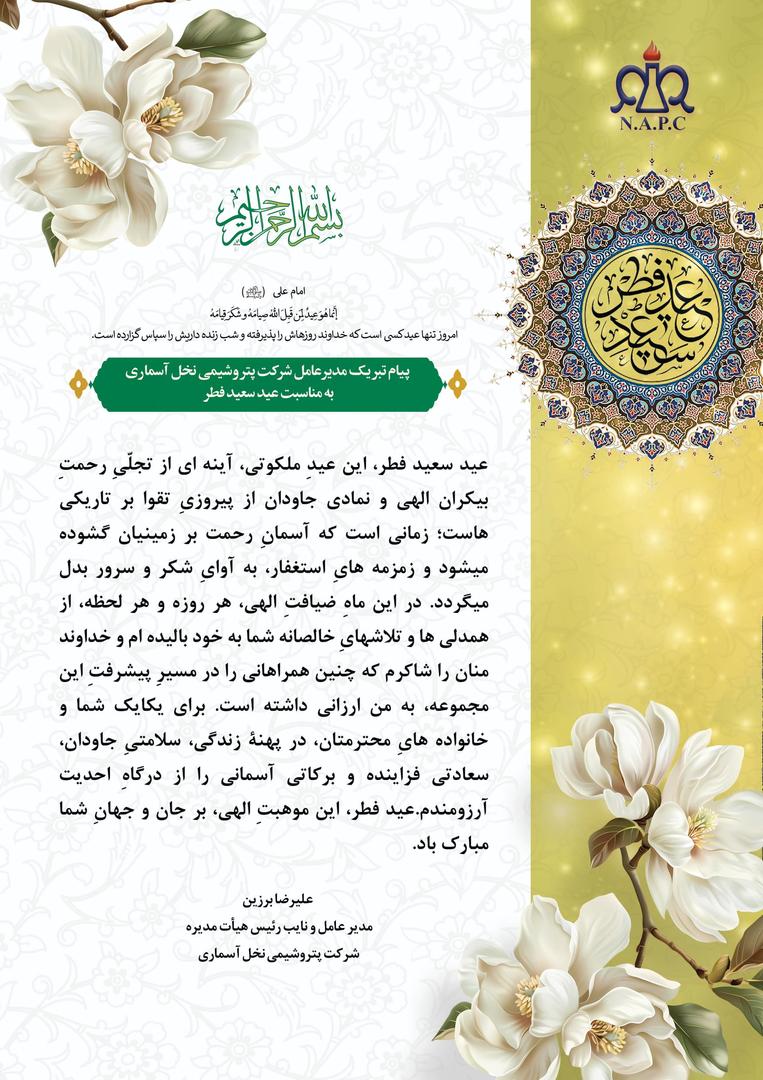 N.A.P.C
عید سعید فطر
بسم الله الرحمن الرحیم
امام علی (علیه السلام)
إنَّما هُوَ عیدٌ لِمَن قَبِلَ اللهُ صِیامَهُ و شَکَرَ قِیامَهُ
امروز تنها عید کسی است که خداوند روزهاش را پذیرفته و شب زنده داریش را سپاس گزارده است.
پیام تبریک مدیرعامل شرکت پتروشیمی نخل آسماری
به مناسبت عید سعید فطر
عید سعید فطر، این عیدِ ملکوتی، آینه ای از تجلّیِ رحمتِ
بیکران الهی و نمادی جاودان از پیروزیِ تقوا بر تاریکی
هاست؛ زمانی است که آسمانِ رحمت بر زمینیان گشوده
میشود و زمزمه هایِ استغفار، به آوایِ شکر و سرور بدل
میگردد. در این ماهِ ضیافتِ الهی، هر روزه و هر لحظه، از
همدلی ها و تلاشهایِ خالصانه شما به خود بالیده ام و خداوند
منان را شاکرم که چنین همراهانی را در مسیرِ پیشرفتِ این
مجموعه، به من ارزانی داشته است. برای یکایک شما و
خانواده هایِ محترمتان، در پهنهٔ زندگی، سلامتیِ جاودان،
سعادتی فزاینده و برکاتی آسمانی را از درگاهِ احدیت
آرزومندم.عید فطر، این موهبتِ الهی، بر جان و جهانِ شما
مبارک باد.
علیرضا برزین
مدیر عامل و نایب رئیس هیأت مدیره
شرکت پتروشیمی نخل آسماری